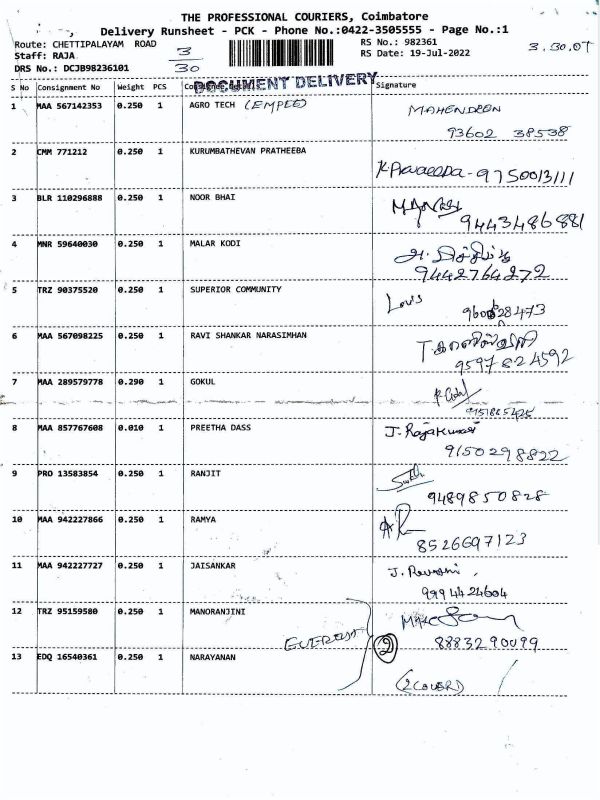 THE PROFESSIONAL COURIERS, Coimbatore
Delivery Runsheet - PCK - Phone No.:0422-3505555 - Page No.:1
Route: CHETTIPALAYAM ROAD
RS No.: 982361
Staff: RAJA
RS Date: 19-Jul-2022
DRS No.: DCJB98236101
3
30
3.30.07
DOCUMENT DELIVERY
S No Consignment No Weight PCS Signature
1 MAA 567142353 0.250 1 AGRO TECH (EMPEE) MAHENDREN
93602 38538
2 CMM 771212 0.250 1 KURUMBATHEVAN PRATHEEBA
9750013111
3 BLR 110296888 0.250 1 NOOR BHAI
9443486881
4 MNR 59640030 0.250 1 MALAR KODI
9442764272
5 TRZ 90375520 0.250 1 SUPERIOR COMMUNITY Louis
28473
6 MAA 567098225 0.250 1 RAVI SHANKAR NARASIMHAN
9597824592
7 MAA 289579778 0.290 1 GOKUL
8 MAA 857767608 0.010 1 PREETHA DASS J. Rajakumari
9150298822
9 PRO 13583854 0.250 1 RANJIT
9489850828
10 MAA 942227866 0.250 1 RAMYA
8526697123
11 MAA 942227727 0.250 1 JAISANKAR
9994424604
12 TRZ 95159580 0.250 1 MANORANJINI
EUEREST 2 8883290099
13 EDQ 16540361 0.250 1 NARAYANAN
(2 COVER)